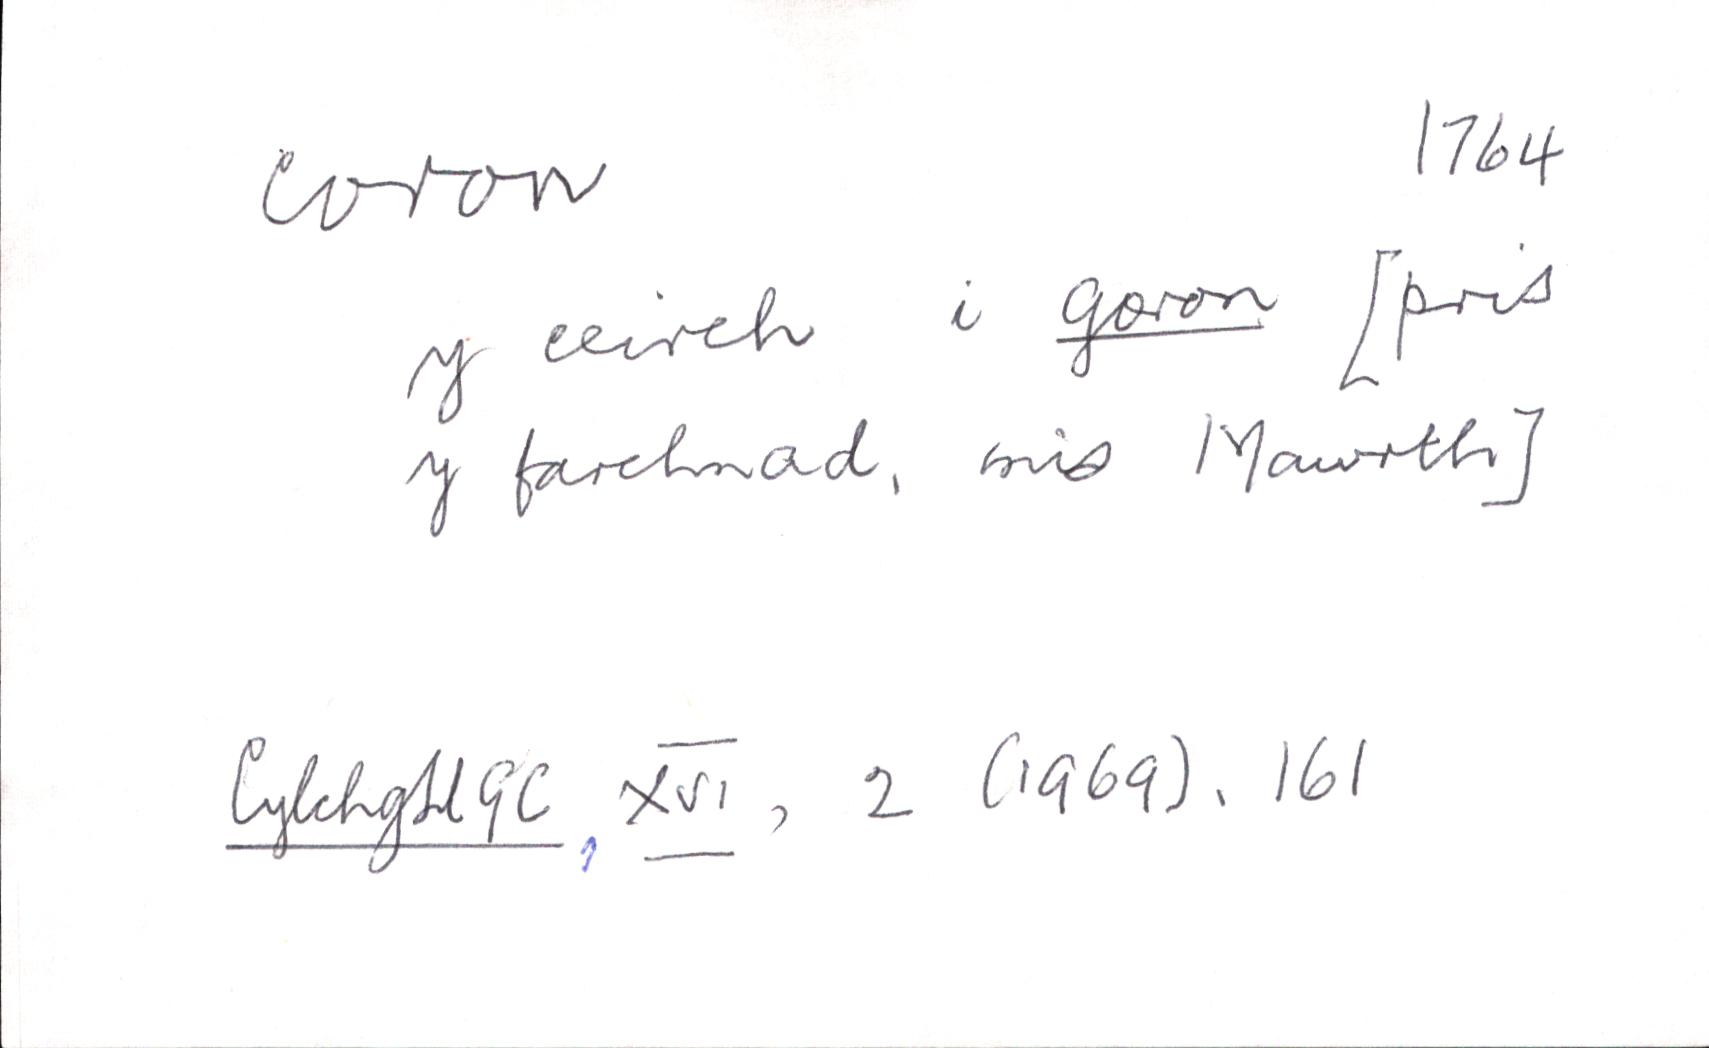 coron 1764
y ceirch i goron [pris
y farchnad, mis Mawrth]
CylchgLlGC, XVI, 2 (1969). 161